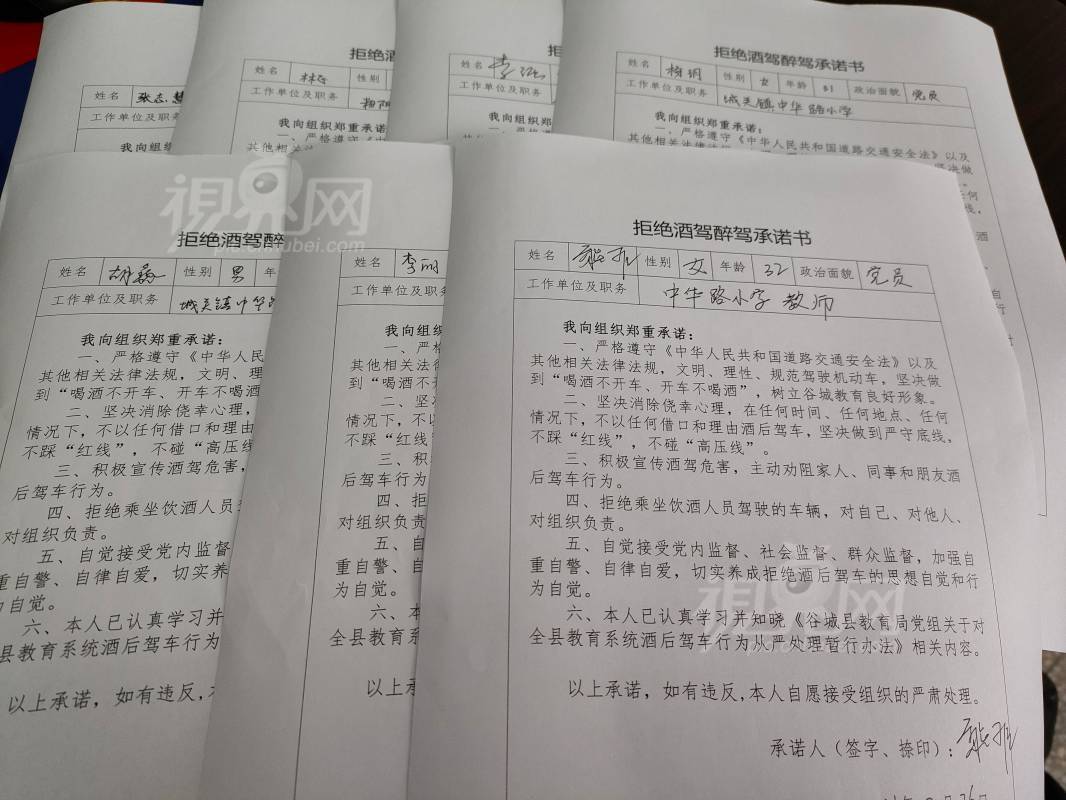 拒绝酒
姓名 张志慧
工作单位及职务
我向组织
姓名 林 性别
工作单位及职务
我向组织郑重承诺:
一、严格
姓名 李 
工作单位及职务
我向组
拒绝酒驾醉驾承诺书
姓名 梅玥 性别 女 年龄 31 政治面貌 党员
工作单位及职务 城关镇中华路小学
我向组织郑重承诺:
一、严格遵守《中华人民共和国道路交通安全法》以及
其他相关法律法规,文明、理性、规范驾驶机动车,坚决做
視界网
拒绝酒驾醉
姓名 胡 性别 男 年
工作单位及职务 城关镇中华路
我向组织郑重承诺:
一、严格遵守《中华人民
其他相关法律法规,文明、理
到“喝酒不开车、开车不喝酒
二、坚决消除侥幸心理,
情况下,不以任何借口和理由
不踩“红线”,不碰“高压线
三、积极宣传酒驾危害,
后驾车行为。
四、拒绝乘坐饮酒人员
对组织负责。
五、自觉接受党内监督
重自警、自律自爱,切实养
为自觉。
六、本人已认真学习并
全县教育系统酒后驾车行为
以上承诺,如有违反,
姓名 李丽
工作单位及职务
我向组织
一、严格
其他相关法律
到“喝酒不开
二、坚决
情况下,不以
不踩“红线”
三、积极
后驾车行为
四、拒绝
对组织负责
五、自
重自警、自
为自觉。
六、本
全县教育系
以上承
拒绝酒驾醉驾承诺书
姓名 性别 女 年龄 32 政治面貌 党员
工作单位及职务 中华路小学 教师
我向组织郑重承诺:
一、严格遵守《中华人民共和国道路交通安全法》以及
其他相关法律法规,文明、理性、规范驾驶机动车,坚决做
到“喝酒不开车、开车不喝酒”,树立谷城教育良好形象。
二、坚决消除侥幸心理,在任何时间、任何地点、任何
情况下,不以任何借口和理由酒后驾车,坚决做到严守底线,
不踩“红线”,不碰“高压线”。
三、积极宣传酒驾危害,主动劝阻家人、同事和朋友酒
后驾车行为。
四、拒绝乘坐饮酒人员驾驶的车辆,对自己、对他人、
对组织负责。
五、自觉接受党内监督、社会监督、群众监督,加强自
重自警、自律自爱,切实养成拒绝酒后驾车的思想自觉和行
为自觉。
六、本人已认真学习并知晓《谷城县教育局党组关于对
全县教育系统酒后驾车行为从严处理暂行办法》相关内容。
以上承诺,如有违反,本人自愿接受组织的严肃处理。
承诺人(签字、捺印):
視界网